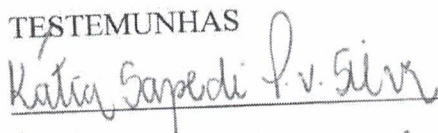 TESTEMUNHAS
Kátia Sapedi P. v. Silva